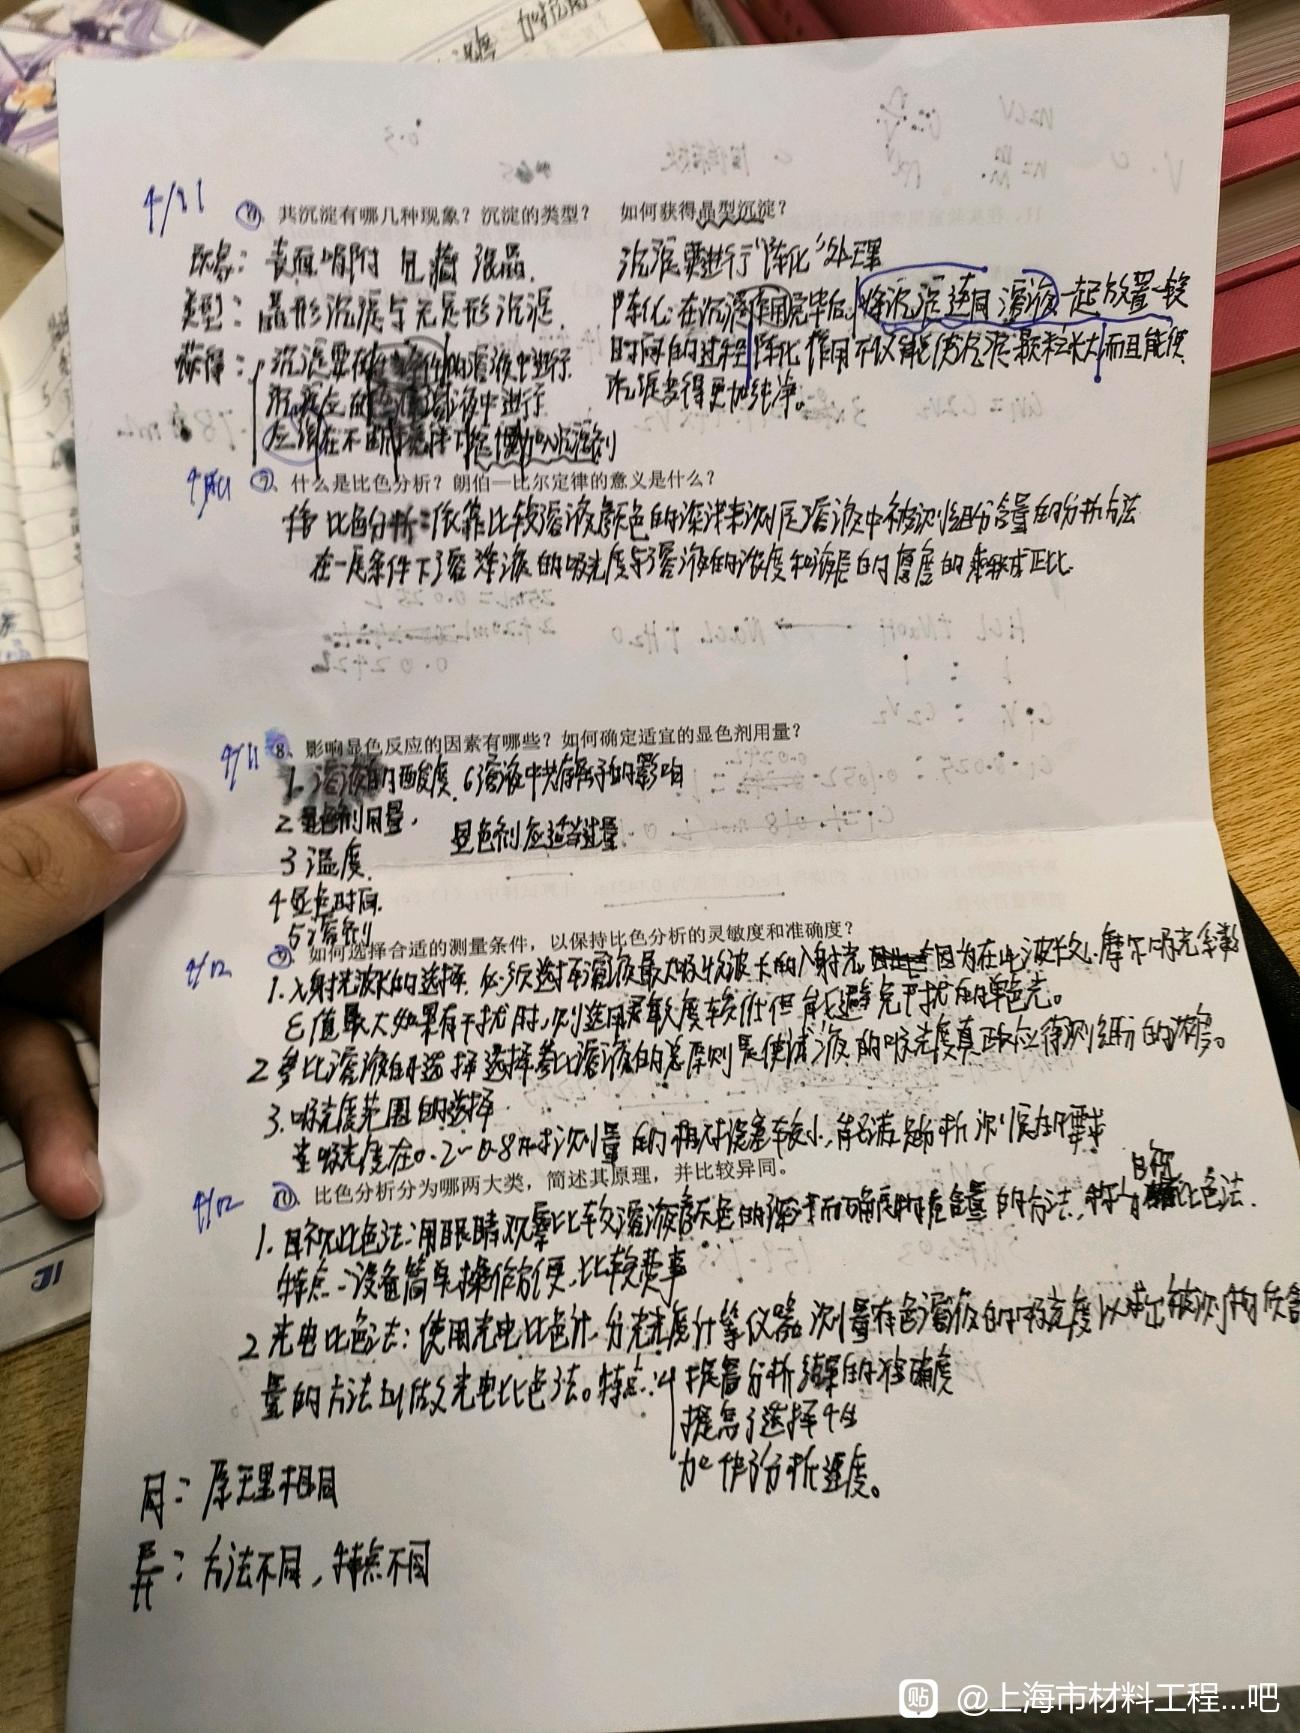 4/11 共沉淀有哪几种现象？沉淀的类型？ 如何获得晶型沉淀？
现象：表面吸附 包藏 混晶.
类型：晶形沉淀与无定形沉淀.
获得：沉淀要在 的溶液中进行
沉淀应在 溶液中进行
应须在不断 下 慢加入沉淀剂
沉淀要进行“陈化”处理
陈化：在沉淀作用完毕后，将沉淀连同溶液一起放置一较
时间的过程 陈化作用不仅能使沉淀颗粒长大 而且能使
沉淀 得更加纯净。
什么是比色分析？朗伯—比尔定律的意义是什么？
比色分析：依靠比较溶液颜色的深浅来测定溶液中被测组分含量的分析方法
在一定条件下 溶液的吸光度与溶液的浓度和液层的厚度的乘积成正比.
4/11 8、影响显色反应的因素有哪些？如何确定适宜的显色剂用量？
1. 溶液的酸度. 6溶液中共存离子的影响
2 显色剂用量. 显色剂应适当过量.
3 温度.
4 显色时间.
5 溶剂
4/12 9、如何选择合适的测量条件，以保持比色分析的灵敏度和准确度？
1. 入射光波长的选择. 必须选择溶液最大吸收波长的入射光 因为在此波长处.摩尔吸光系数
ε值最大如果有干扰时，则选用灵敏度较低但能避免干扰的单色光。
2 参比溶液的选择 选择参比溶液的总原则是使试液的吸光度真正反应待测组分的浓度。
3. 吸光度范围的选择.
吸光度在0.2~0.8时测量的相对误差较小，能满足分析测定的要求
4/12 10、比色分析分为哪两大类，简述其原理，并比较异同。
1. 目视比色法：用眼睛观察比较溶液颜色的深浅而确定物质含量的方法，称为目视比色法.
特点：设备简单操作方便，比较费事
2 光电比色法：使用光电比色计、分光光度计等仪器测量有色溶液的吸光度以求出被测物质含
量的方法叫做光电比色法。特点： 提高分析结果的准确度
提高了选择性
加快了分析速度。
同：原理相同
异：方法不同，特点不同
贴 @上海市材料工程...吧